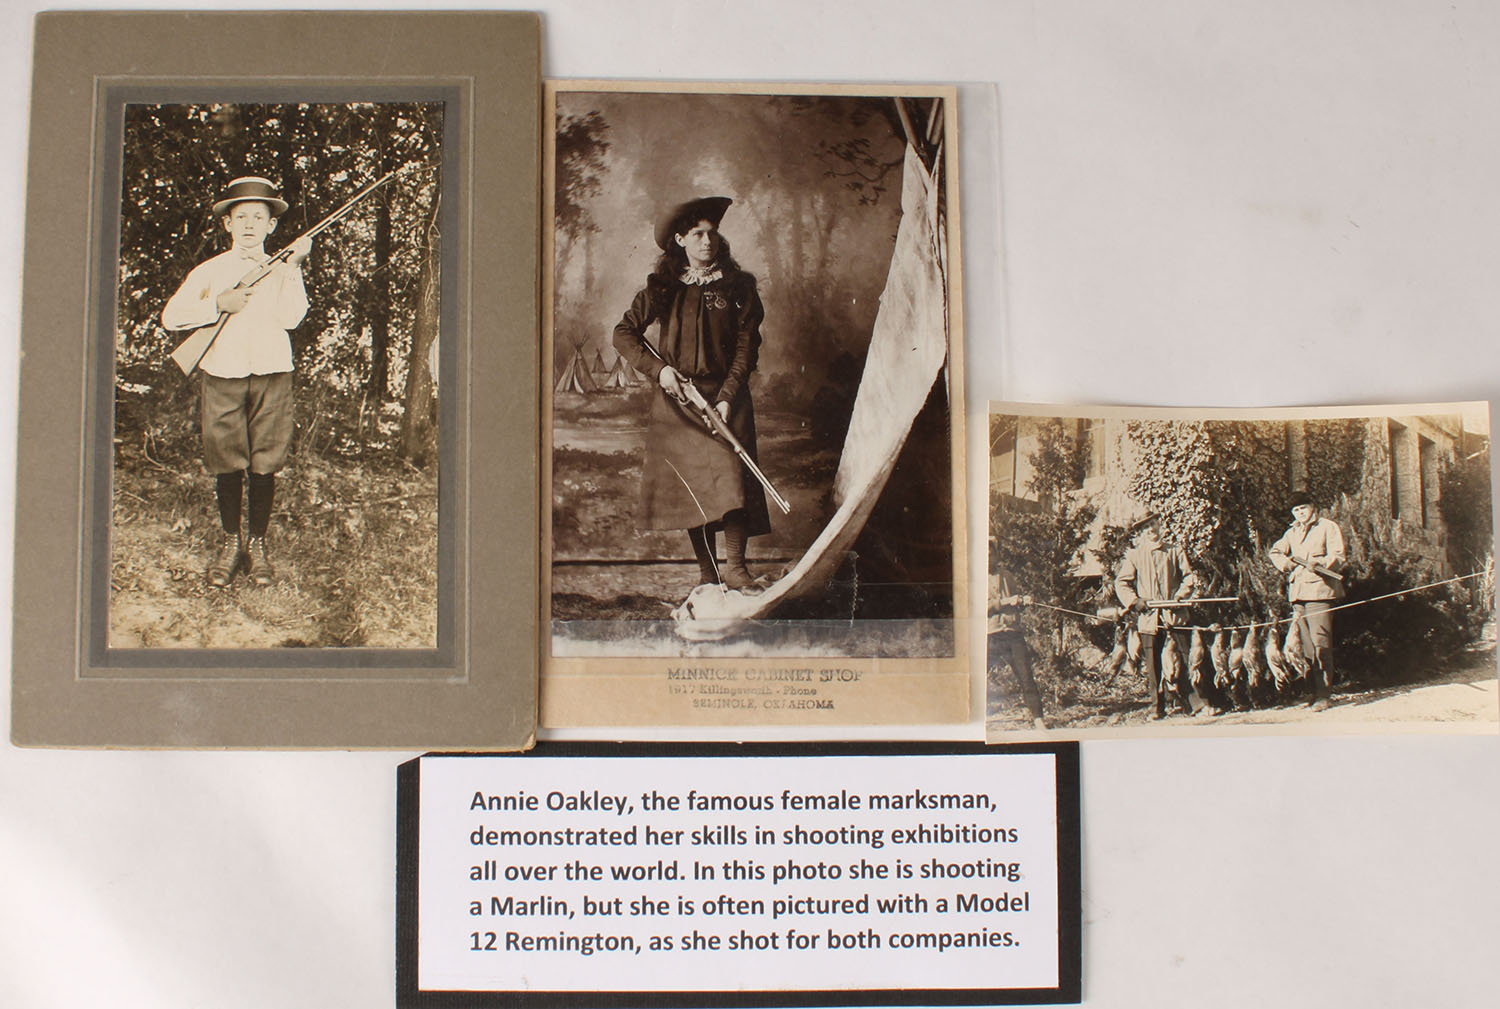 MINNICK CABINET SHOP
1917 Killingsworth - Phone
SEMINOLE, OKLAHOMA
Annie Oakley, the famous female marksman,
demonstrated her skills in shooting exhibitions
all over the world. In this photo she is shooting
a Marlin, but she is often pictured with a Model
12 Remington, as she shot for both companies.